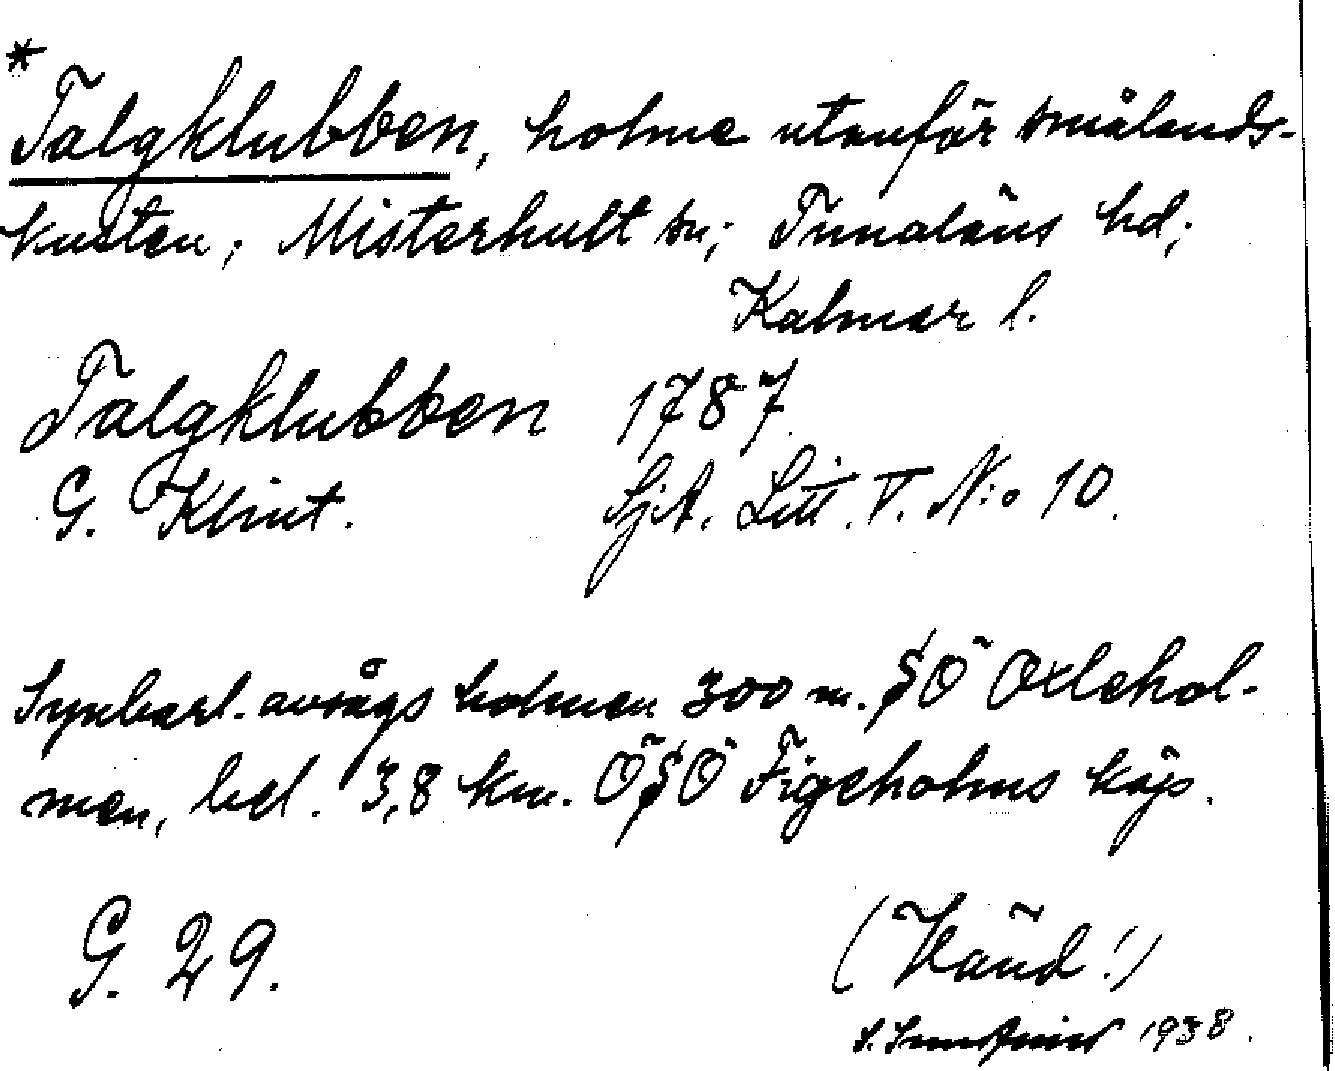 *
Talgklubben, holme utanför smålands-
kusten; Misterhult sn; Tunaläns hd;
Kalmar l.
Talgklubben 1787
G. Klint. SjA. Litt. V. N:o 10.
Synbarl. avsågs holmen 300 m. SÖ Oxlehol-
men, bel. 3,8 km. ÖSÖ Figeholms köp.
G. 29. (Vänd!)
1938.